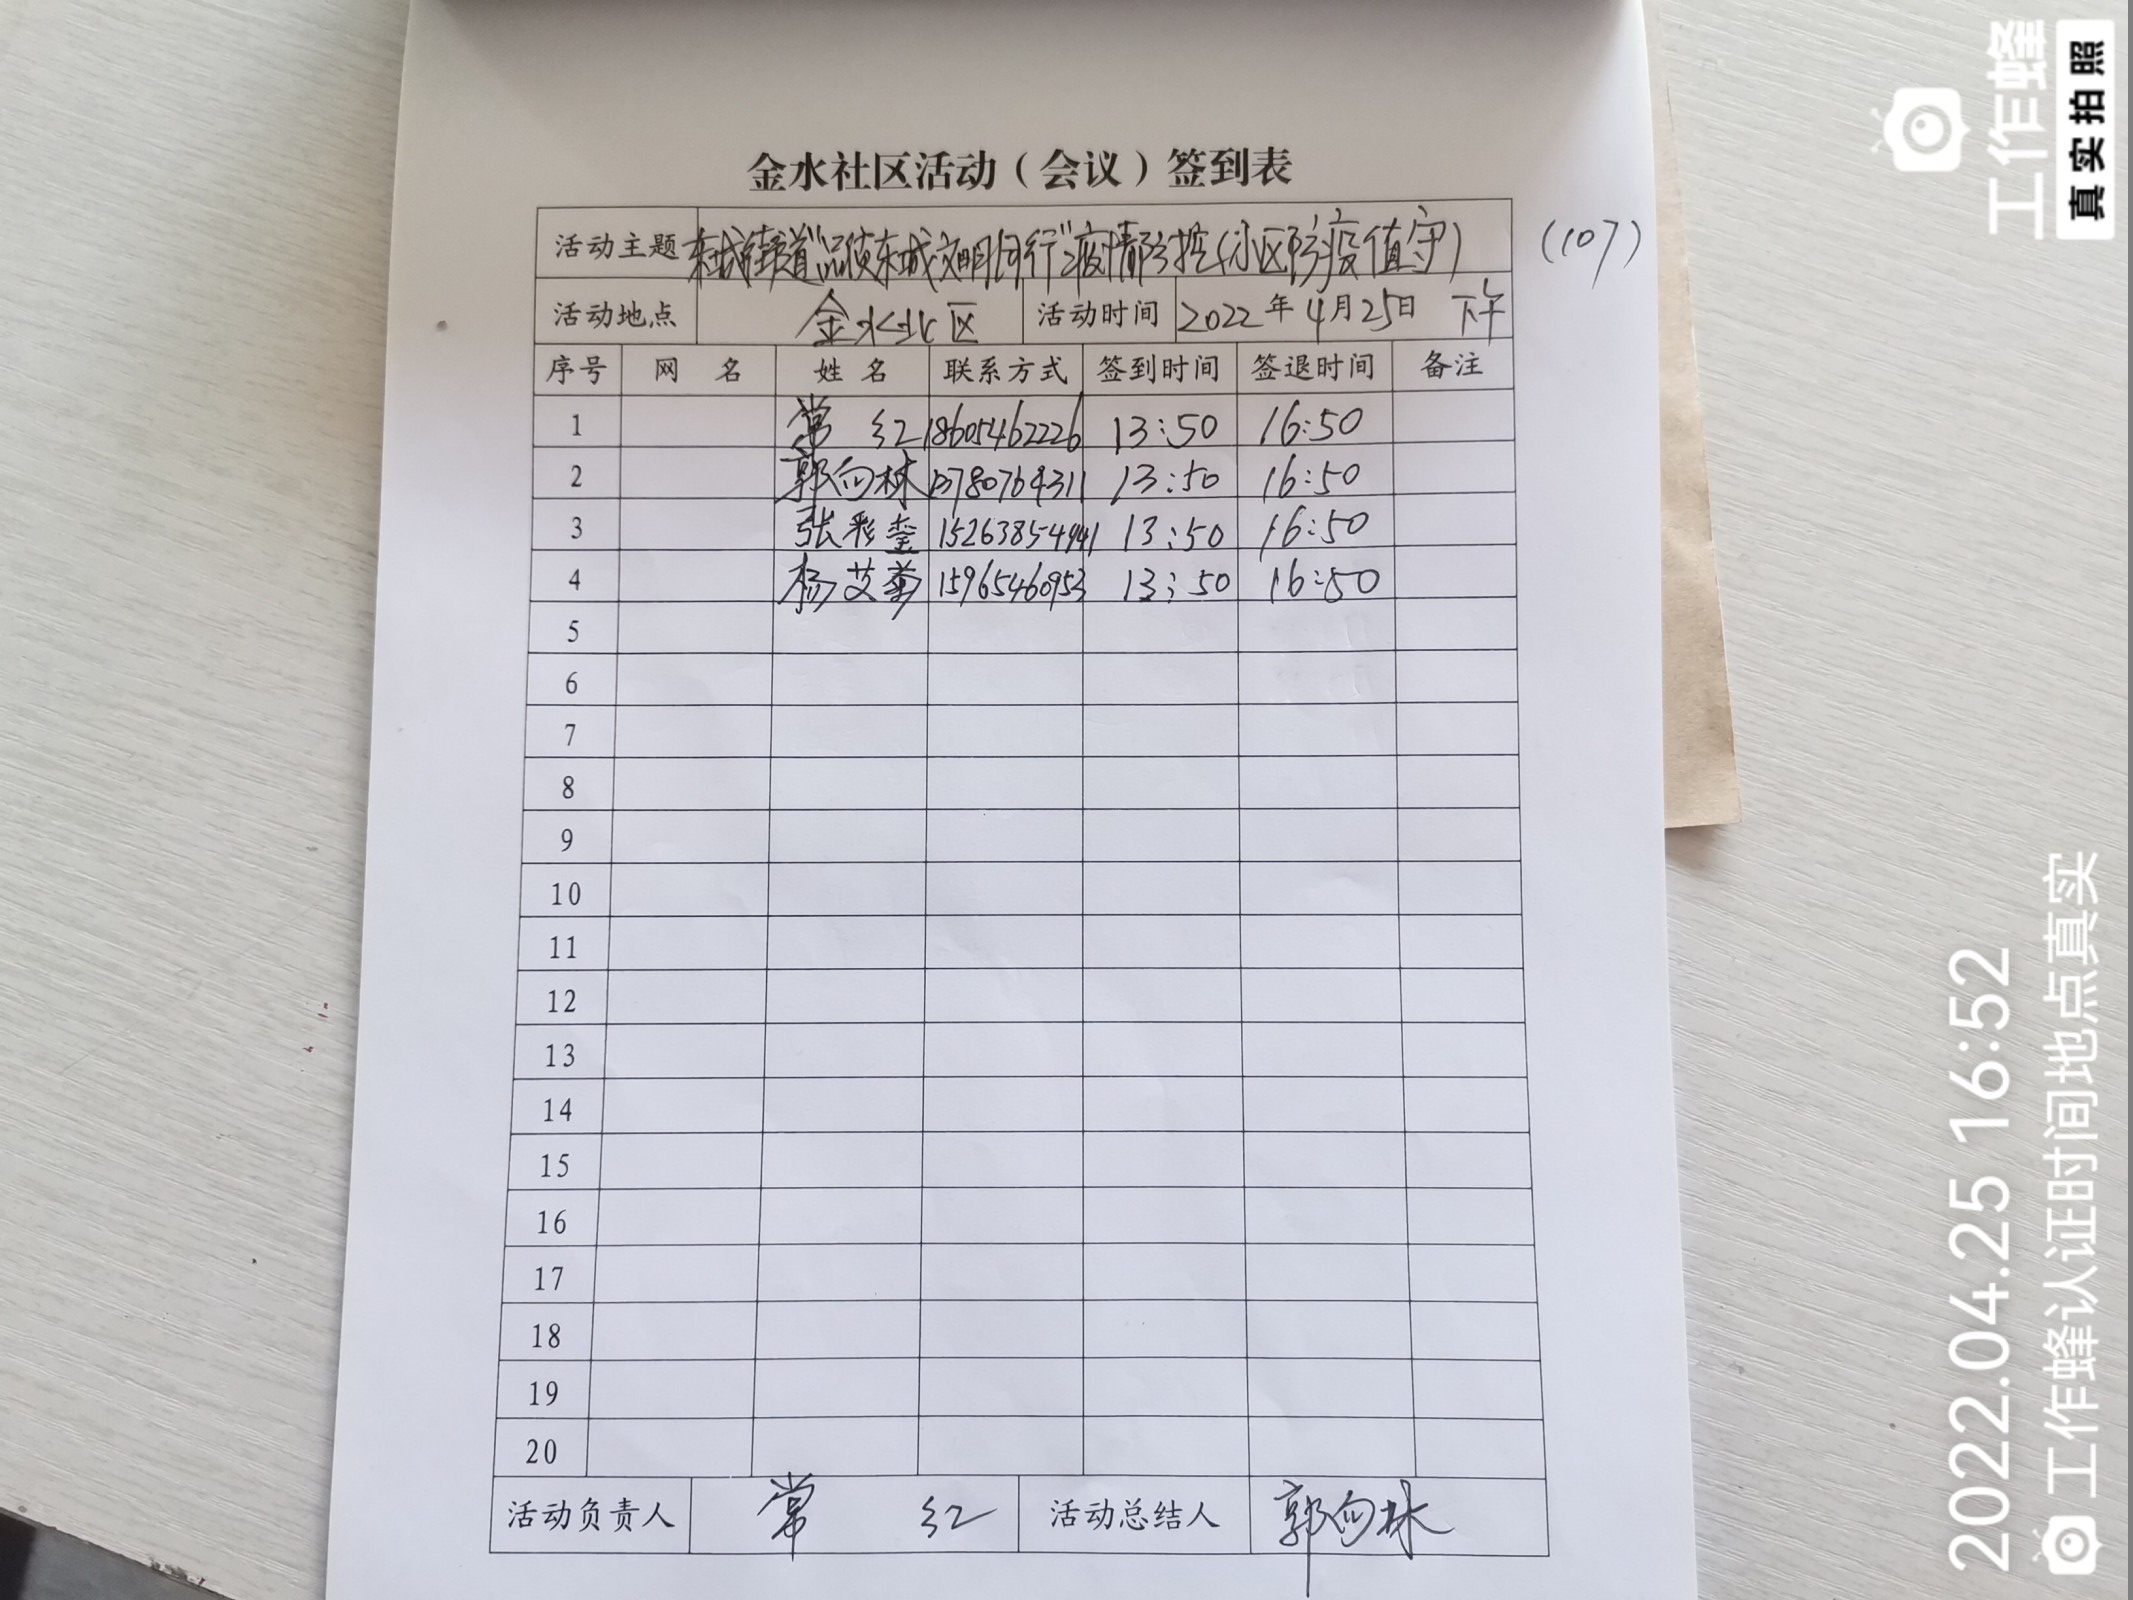 金水社区活动（会议）签到表
活动主题 东城街道“品质东城文明同行”疫情防控（小区防疫值守） （107）
活动地点 金水北区 活动时间 2022年4月25日 下午
序号 网 名 姓 名 联系方式 签到时间 签退时间 备注
1 常 红 18605462226 13:50 16:50
2 郭向林 13780764311 13:50 16:50
3 张彩 15263854941 13:50 16:50
4 杨艾菊 15965460953 13:50 16:50
5
6
7
8
9
10
11
12
13
14
15
16
17
18
19
20
活动负责人 常 红 活动总结人 郭向林
工作蜂
真实拍照
2022.04.25 16:52
工作蜂认证时间地点真实